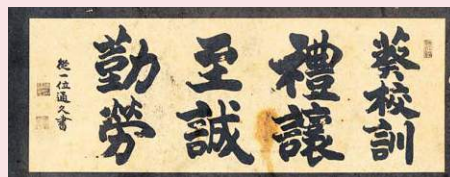 葵校訓
禮讓
至誠
勤勞
從一位通久書